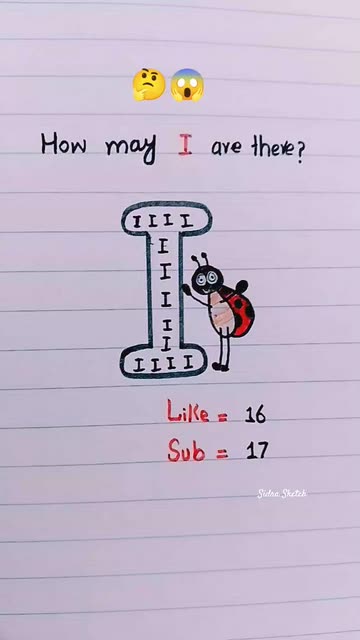 🤔😱
How may I are there?
I I I I
I
I
I
I
I
I I I I
Like = 16
Sub = 17
Sidra Sketch